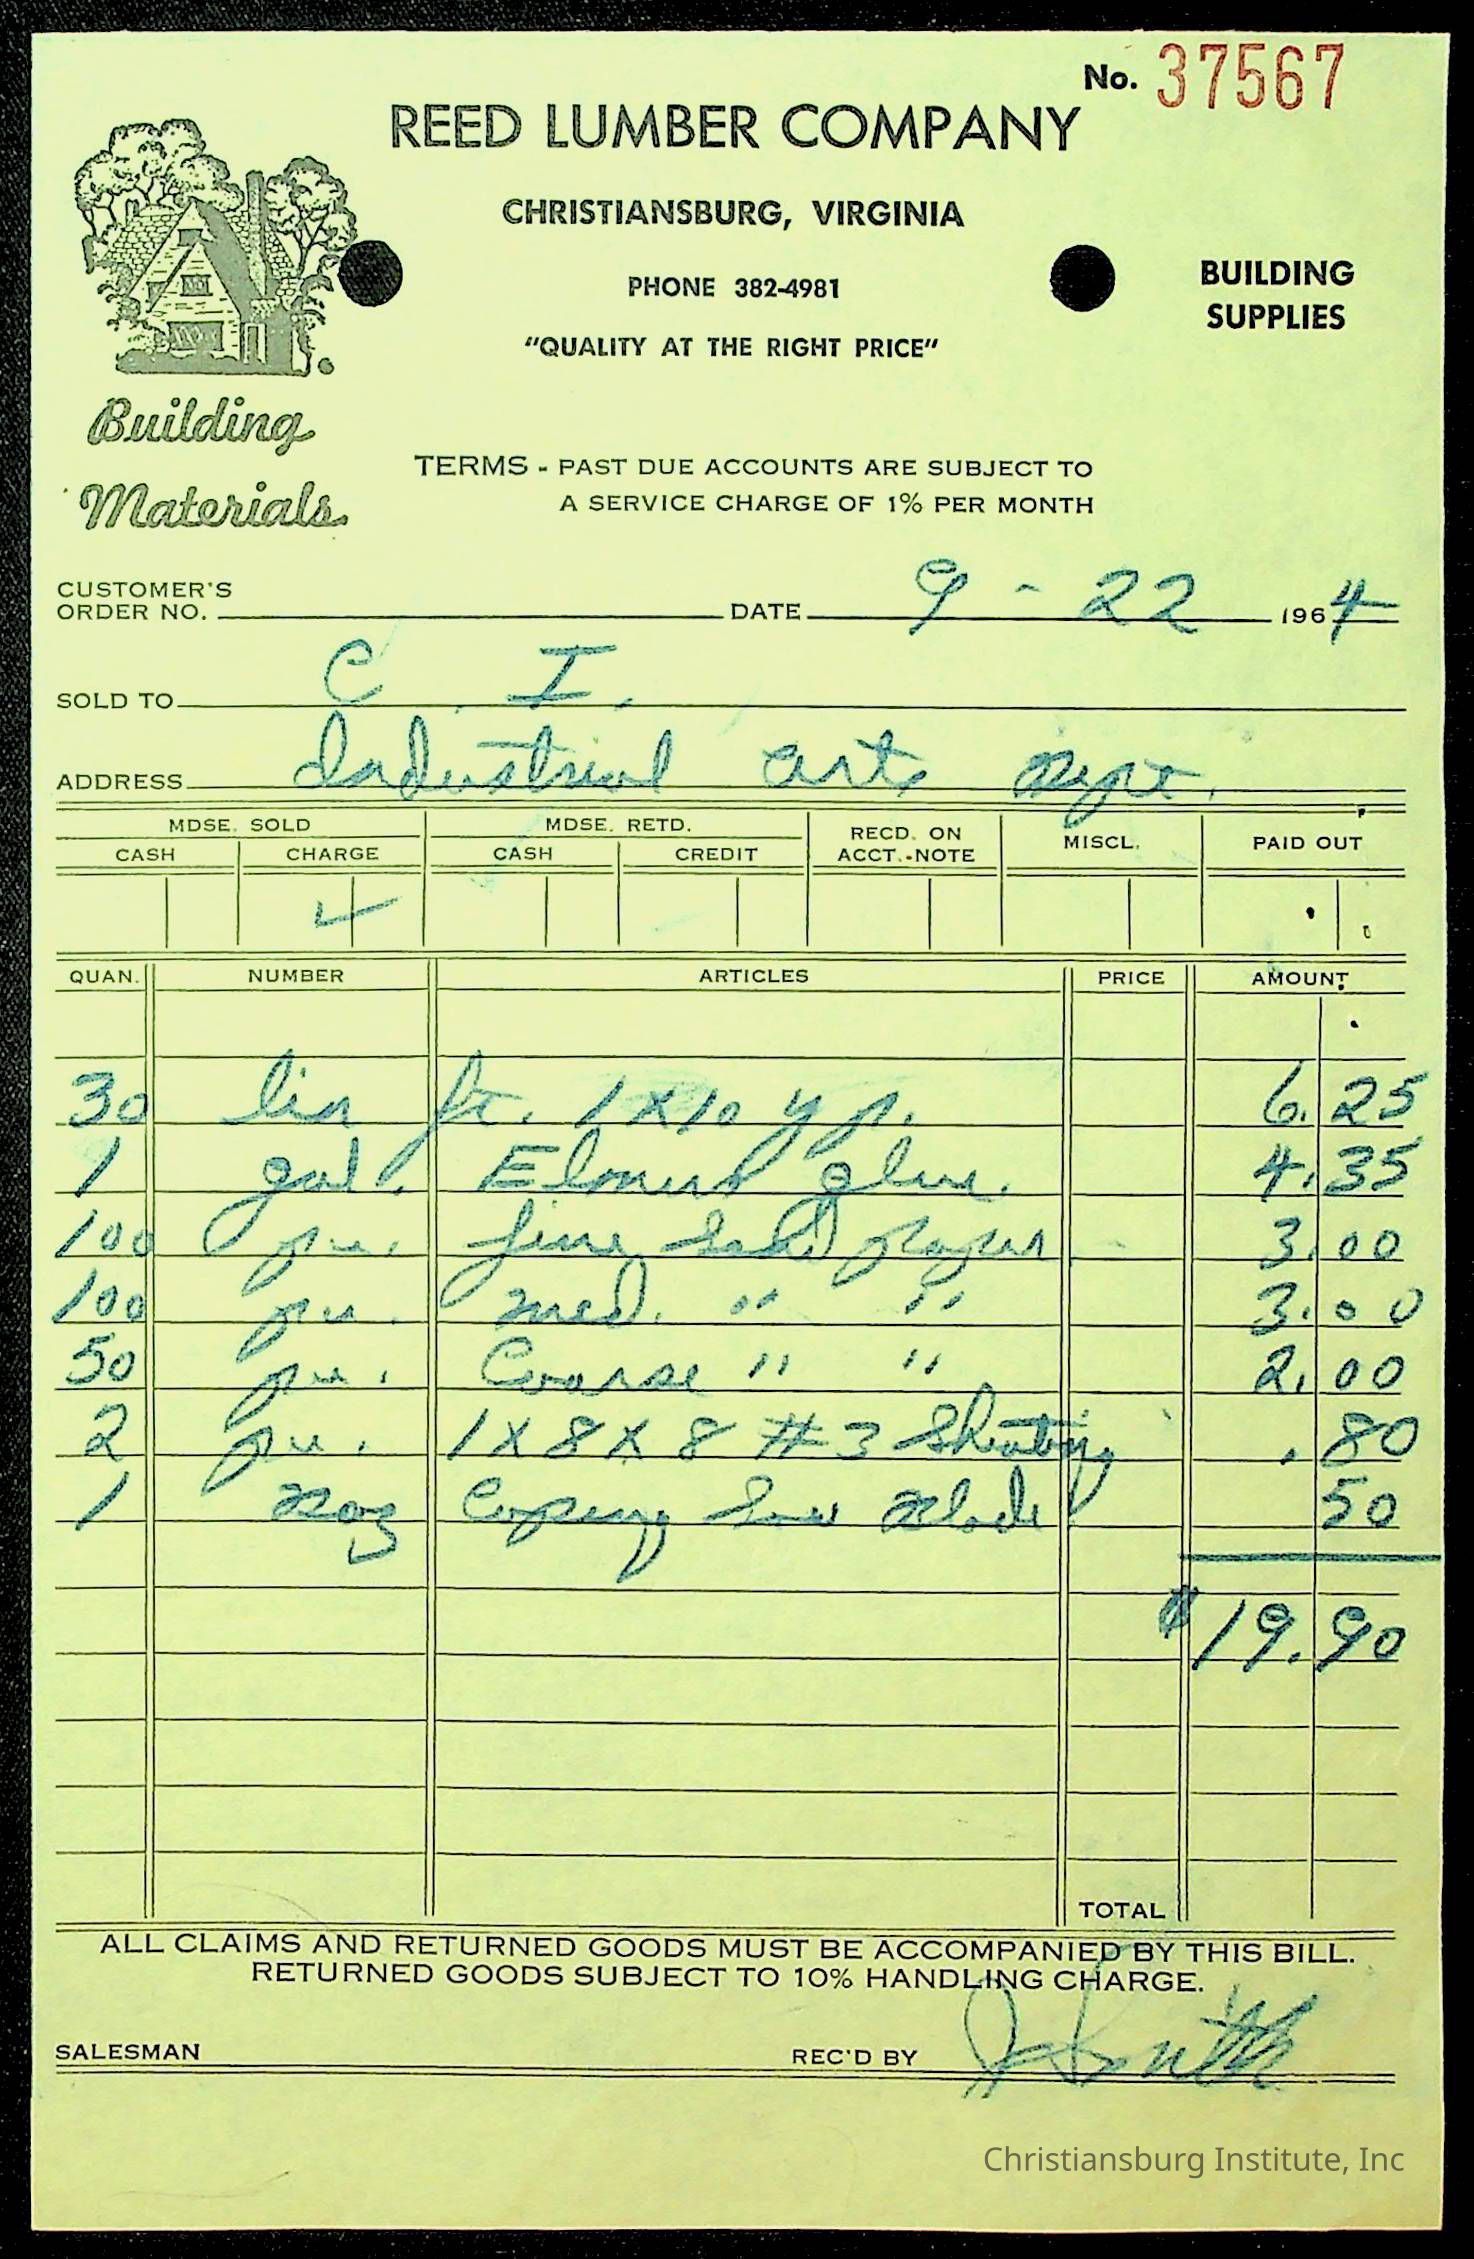 No. 37567
REED LUMBER COMPANY
CHRISTIANSBURG, VIRGINIA
PHONE 382-4981
"QUALITY AT THE RIGHT PRICE"
BUILDING
SUPPLIES
Building
Materials
TERMS - PAST DUE ACCOUNTS ARE SUBJECT TO
A SERVICE CHARGE OF 1% PER MONTH
CUSTOMER'S
ORDER NO. DATE 9 - 22 1964
SOLD TO C. I.
ADDRESS Industrial arts Dept.
MDSE. SOLD MDSE. RETD. RECD. ON ACCT.-NOTE MISCL. PAID OUT
CASH CHARGE CASH CREDIT
QUAN. NUMBER ARTICLES PRICE AMOUNT
30 lin ft. 1 x 10 y p. 6.25
1 gal. Elmers glue. 4.35
100 pcs. fine sand paper 3.00
100 pcs. med. " " 3.00
50 pcs. Coarse " " 2.00
2 pcs. 1 x 8 x 8 #3 Sheating .80
1 Doz Coping Saw Blade 50
$19.90
TOTAL
ALL CLAIMS AND RETURNED GOODS MUST BE ACCOMPANIED BY THIS BILL.
RETURNED GOODS SUBJECT TO 10% HANDLING CHARGE.
SALESMAN REC'D BY Smith
Christiansburg Institute, Inc